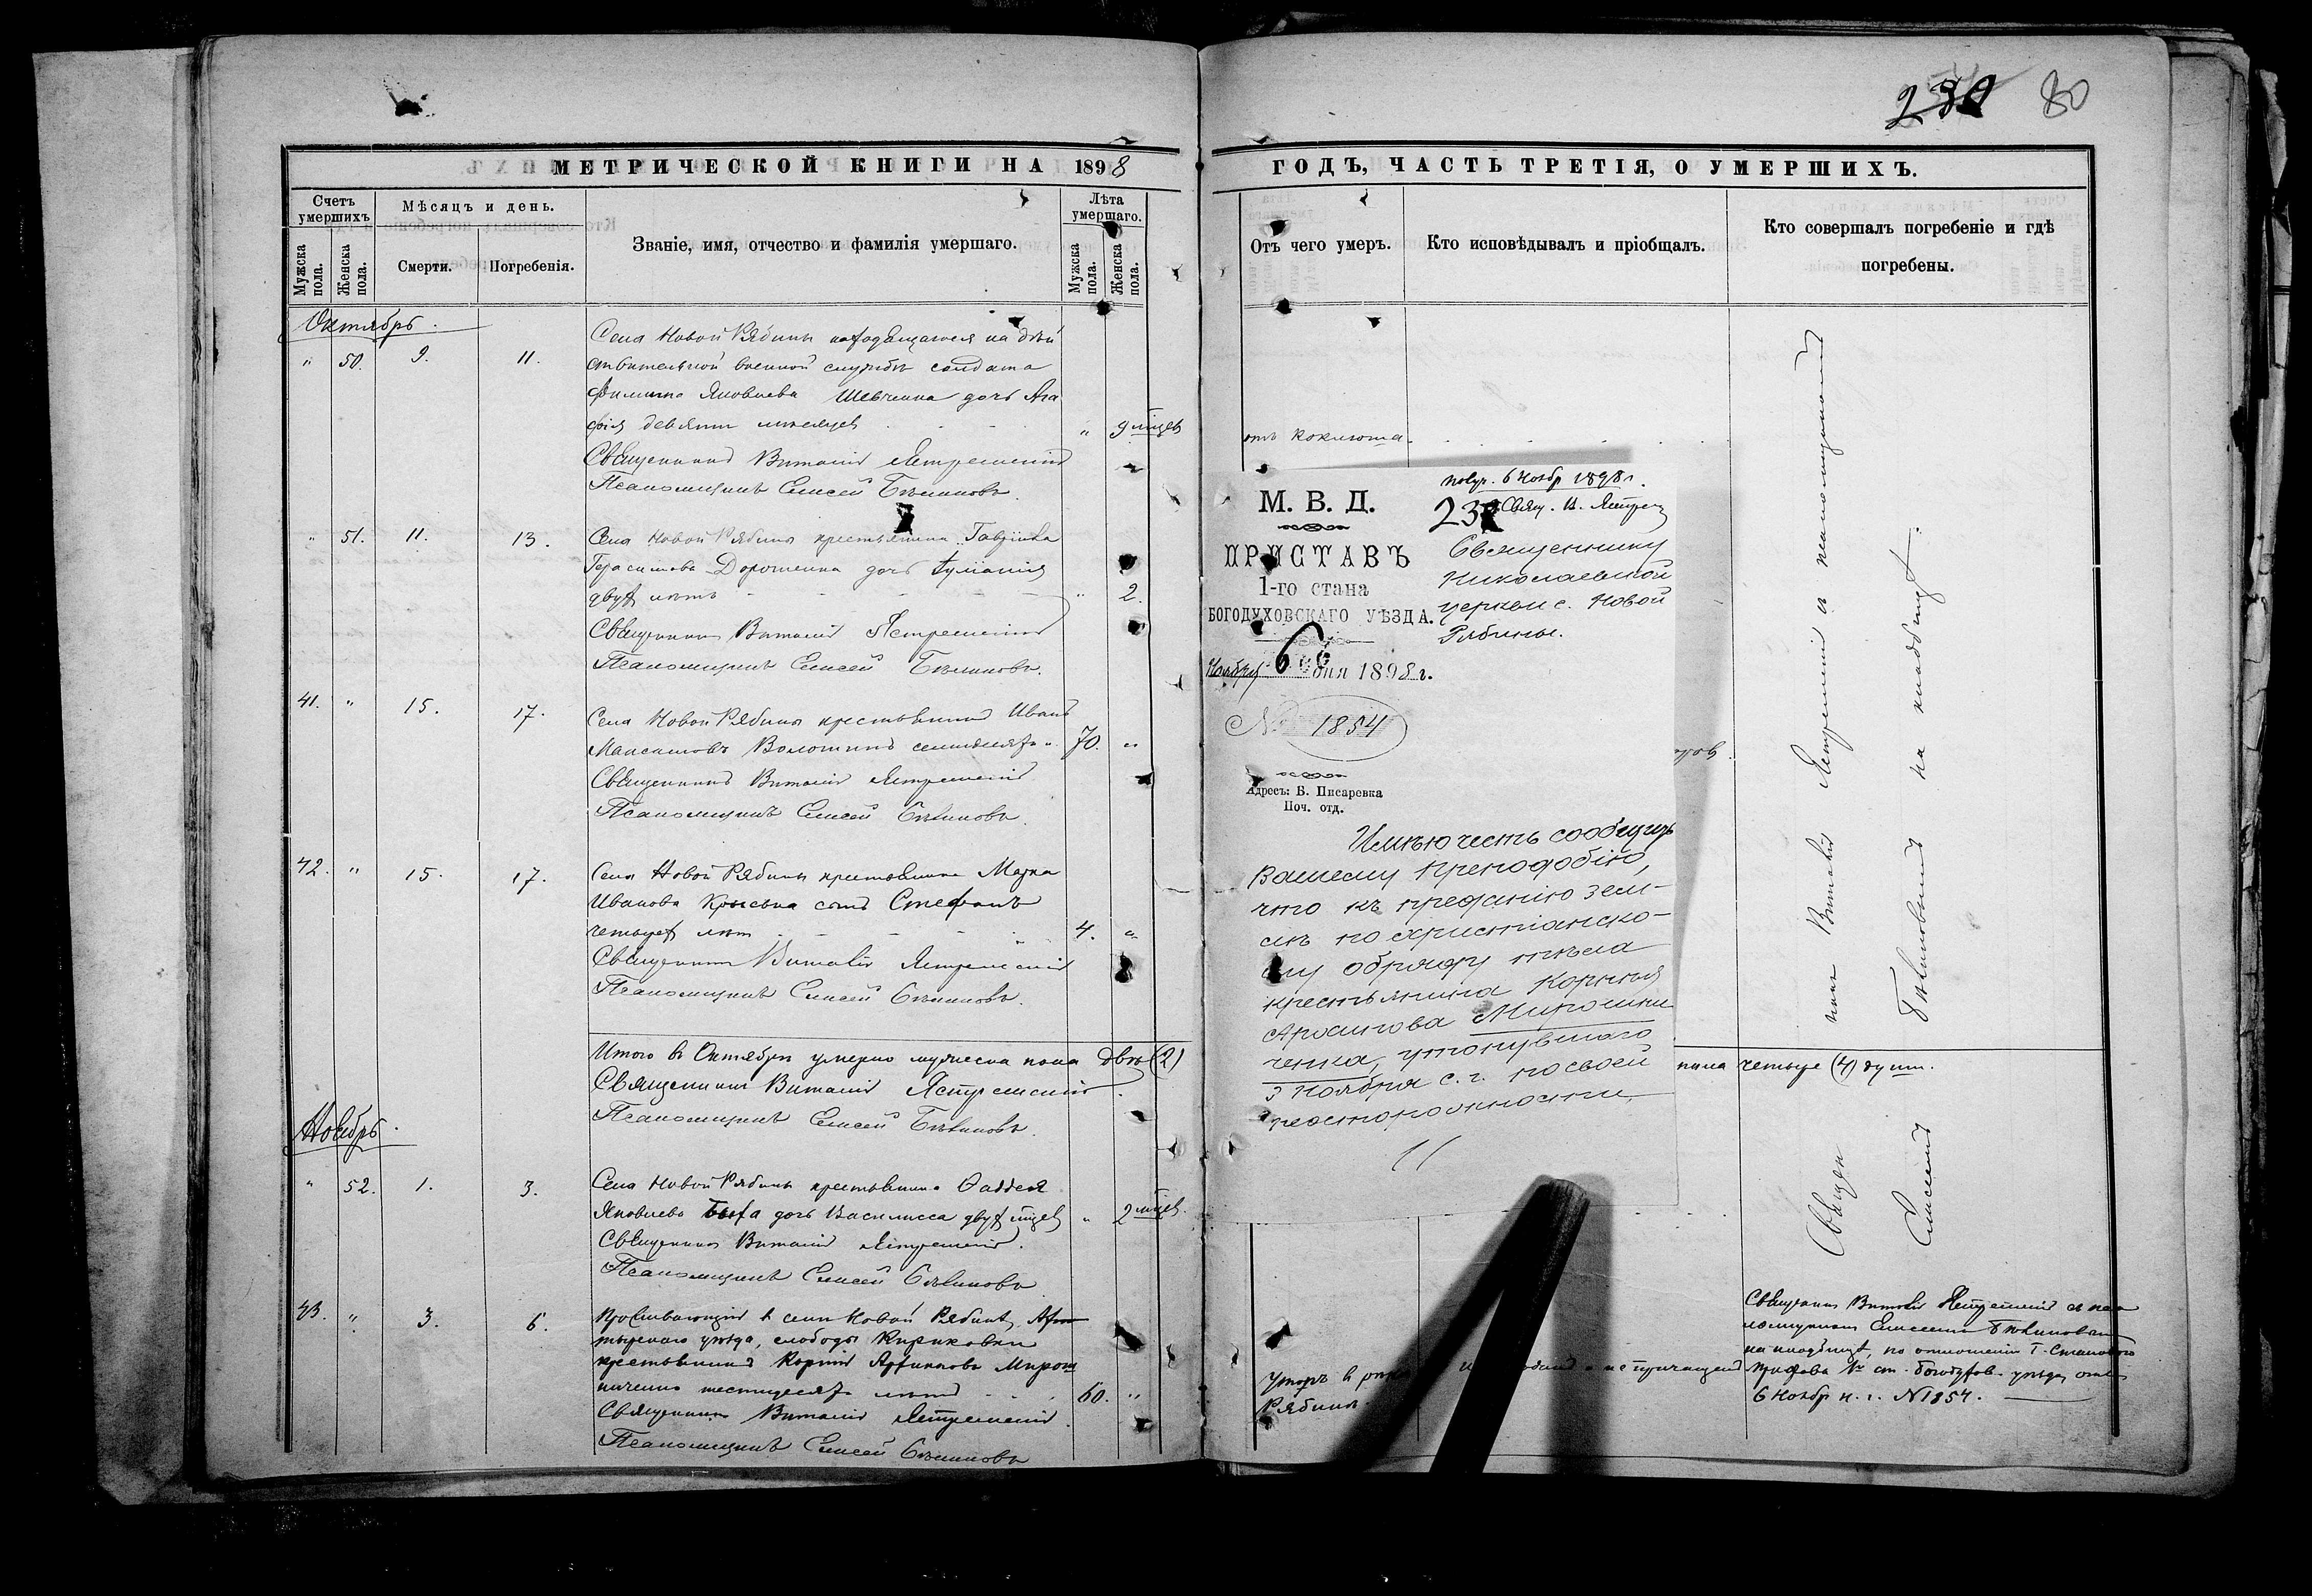 МЕТРИЧЕСКОЙ КНИГИ НА 1898
Счетъ умершихъ
Мѣсяцъ и день.
Званіе, имя, отчество и фамилія умершаго.
Лѣта умершаго.
Мужска пола.
Женска пола.
Смерти.
Погребенія.
Мужска пола.
Женска пола.
Октябрь.
" 50. 9. 11.
Села Новой Рябины находящагося на дѣй
ствительной военной службѣ солдата
Филиппа Яковлева Шевченка дочь Ага
фія девяти мѣсяцевъ " 9 мцевъ
Священникъ Виталій Ястремскій
Псаломщикъ Елисей Бѣлиновъ.
" 51. 11. 13.
Села Новой Рябины крестьянина Гавріила
Герасимова Дорошенка дочь Іуліанія
двухъ лѣтъ " 2.
Священникъ Виталій Ястремскій
Псаломщикъ Елисей Бѣлиновъ.
41. " 15. 17.
Села Новой Рябины крестьянинъ Иванъ
Максимовъ Волошинъ семидесяти 70. "
Священникъ Виталій Ястремскій
Псаломщикъ Елисей Бѣлиновъ.
42. " 15. 17.
Села Новой Рябины крестьянина Марка
Иванова сынъ Стефанъ
четырехъ лѣтъ 4. "
Священникъ Виталій Ястремскій
Псаломщикъ Елисей Бѣлиновъ.
Итого въ Октябрѣ умерло мужеска пола двѣ (2)
Священникъ Виталій Ястремскій.
Псаломщикъ Елисей Бѣлиновъ.
Ноябрь.
" 52. 1. 3.
Села Новой Рябины крестьянина Ѳаддея
Яковлева дочь Василисса двухъ мцевъ " 2 мцев.
Священникъ Виталій Ястремскій.
Псаломщикъ Елисей Бѣлиновъ
43. " 3. 6.
Проживающій въ селѣ Новой Рябинѣ, Ахты
тырскаго уѣзда, слободы Кириковки
крестьянинъ Корній Мирош
ниченко шестидесяти лѣтъ 60. "
Священникъ Виталій Ястремскій.
Псаломщикъ Елисей Бѣлиновъ
80
ГОДЪ, ЧАСТЬ ТРЕТІЯ, О УМЕРШИХЪ.
Отъ чего умеръ.
Кто исповѣдывалъ и пріобщалъ.
Кто совершалъ погребеніе и гдѣ погребены.
отъ коклюша
получ. 6 Ноябр 1898 г.
Свящ. В. Ястрем
М. В. Д.
ПРИСТАВЪ
1-го стана
БОГОДУХОВСКАГО УѢЗДА.
Ноября 6 дня 1898 г.
№ 1854
Адресъ: Б. Писаревка
Поч. отд.
Священнику
Николаевской
церкви с. Новой
Рябины.
Имѣю честь сообщить
Вашему Преподобію,
что къ преданію зем-
лѣ по христіанско-
му обряду тѣла
крестьянина Корнія
Мирошни
ченка, утонувшаго
3 Ноября с. г. по своей
неосторожности
пола четыре (4) душ.
Священ никъ Виталій Ястремскій и псаломщикъ
Елисей Бѣлиновъ на кладбищѣ.
Умеръ въ рѣкѣ
Рябинѣ
Священникъ Виталій Ястремскій съ пса
ломщикомъ Елисеемъ Бѣлиновымъ
на кладбищѣ, по отношенію Г. Становаго
Пристава 1го ст. Богодухов. уѣзда отъ
6 Ноябр н. г. N1854.